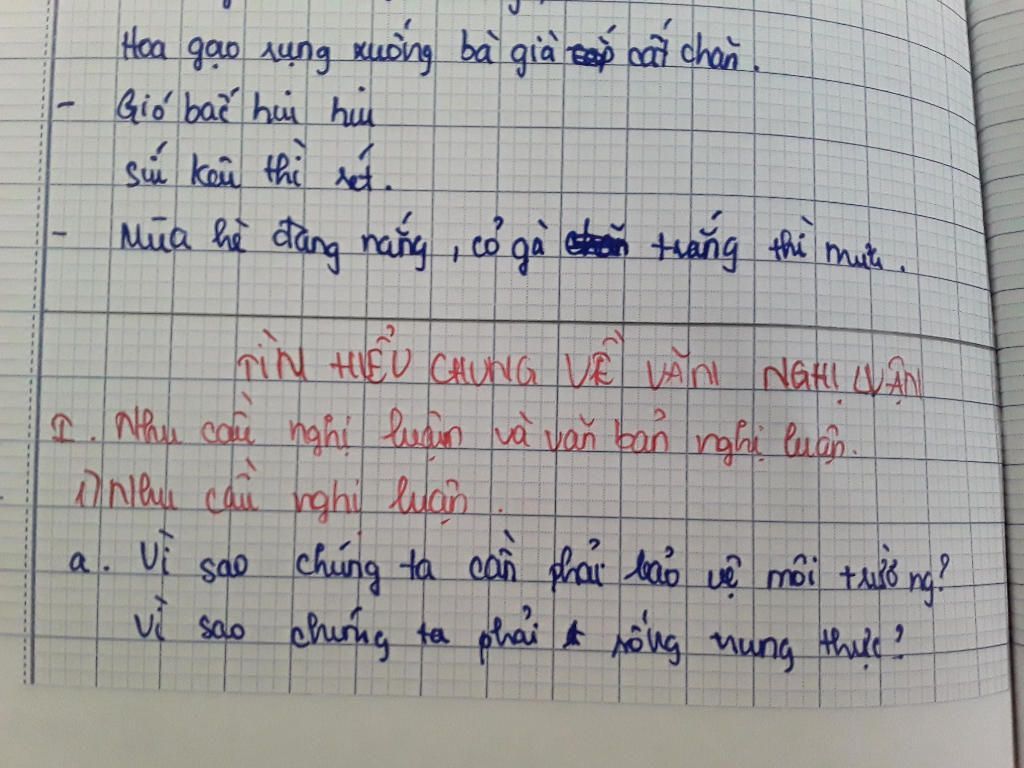 Hoa gạo rụng xuống bà già cất chăn.
- Gió bấc hiu hiu
sếu kêu thì rét.
- Mùa hè đang nắng, cỏ gà trắng thì mưa.
TÌM HIỂU CHUNG VỀ VĂN NGHỊ LUẬN
I. Nhu cầu nghị luận và văn bản nghị luận.
1) Nhu cầu nghị luận.
a. Vì sao chúng ta cần phải bảo vệ môi trường?
Vì sao chúng ta phải sống trung thực?